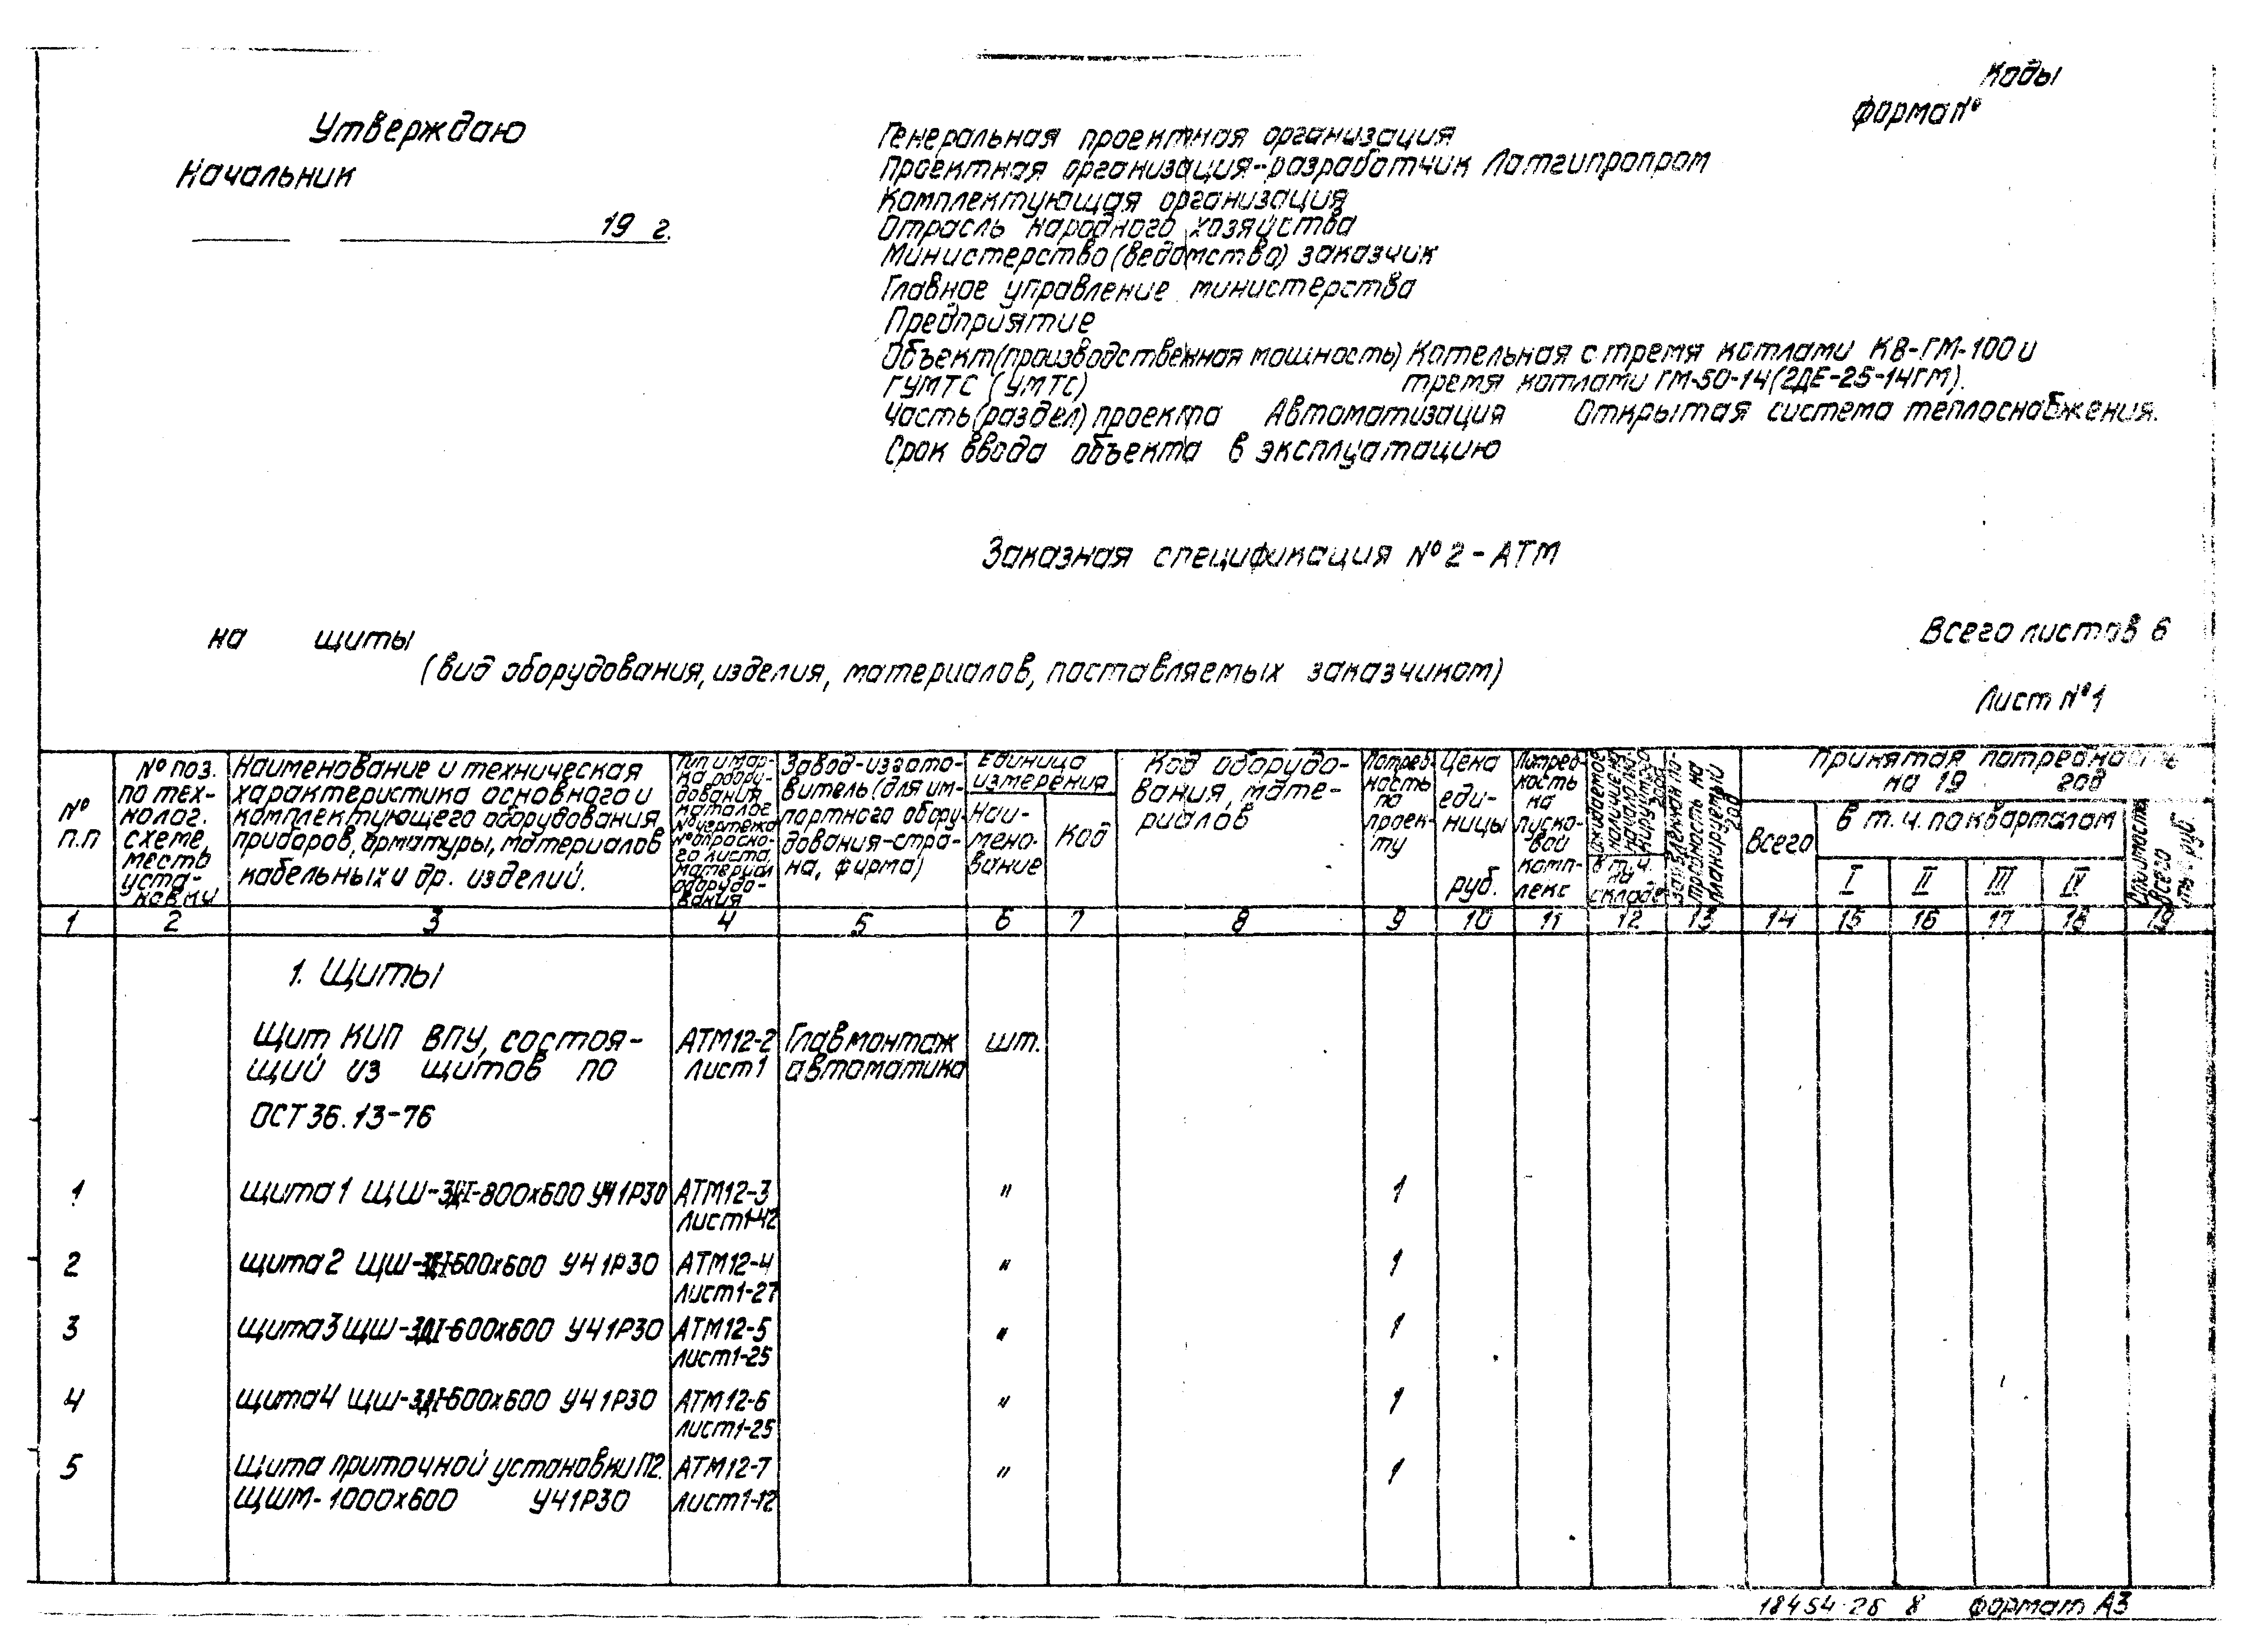 Коды
Форма №
Утверждаю
Начальник
19 г.
Генеральная проектная организация
Проектная организация-разработчик Латгипропром
Комплектующая организация
Отрасль народного хозяйства
Министерство (ведомство) заказчик
Главное управление министерства
Предприятие
Объект (производственная мощность) Котельная с тремя котлами КВ-ГМ-100 и
ГУМТС (УМТС) тремя котлами ГМ-50-14 (2ДЕ-25-14ГМ).
Часть (раздел) проекта Автоматизация Открытая система теплоснабжения.
Срок ввода объекта в эксплуатацию
Заказная спецификация №2-АТМ
на щиты
Всего листов 6
(вид оборудования, изделия, материалов, поставляемых заказчиком)
Лист №1
№
п.п
№ поз.
по тех-
нолог.
схеме,
место
уста-
новки
Наименование и техническая
характеристика основного и
комплектующего оборудования,
приборов, арматуры, материалов
кабельных и др. изделий.
Тип и мар-
ка обору-
дования
каталог
№ чертежа
№ опросно-
го листа,
материал
оборудо-
вания
Завод-изгото-
витель (для им-
портного обору-
дования-стра-
на, фирма)
Единица
измерения
Наи-
мено-
вание
Код
Код оборудо-
вания, мате-
риалов
Потреб-
ность
по
проек-
ту
Цена
еди-
ницы
руб.
Потреб-
ность
на
пуско-
вой
комп-
лекс
Ожидаемое
наличие на
начало
в т.ч.
на
складе
на
планируемый
год
Принятая потребность
на 19 год
Всего
в т.ч. по кварталам
I II III IV
Стоимость
всего
тыс. руб.
1 2 3 4 5 6 7 8 9 10 11 12 13 14 15 16 17 18 19
1. Щиты
Щит КИП ВПУ, состоя- АТМ12-2 Главмонтаж шт.
щий из щитов по лист 1 автоматика
ОСТ 36.13-76
1 Щита 1 ЩШ-ЗД-I-800х600 УЧ 1Р30 АТМ12-3 " 1
лист 1-42
2 Щита 2 ЩШ-ЗД-I-600х600 УЧ 1Р30 АТМ12-4 " 1
лист 1-27
3 Щита 3 ЩШ-ЗД-I-600х600 УЧ 1Р30 АТМ12-5 " 1
лист 1-25
4 Щита 4 ЩШ-ЗД-I-600х600 УЧ 1Р30 АТМ12-6 " 1
лист 1-25
5 Щита приточной установки П2. АТМ12-7 " 1
ЩШМ-1000х600 УЧ 1Р30 лист 1-12
18454-26 8 Формат А3